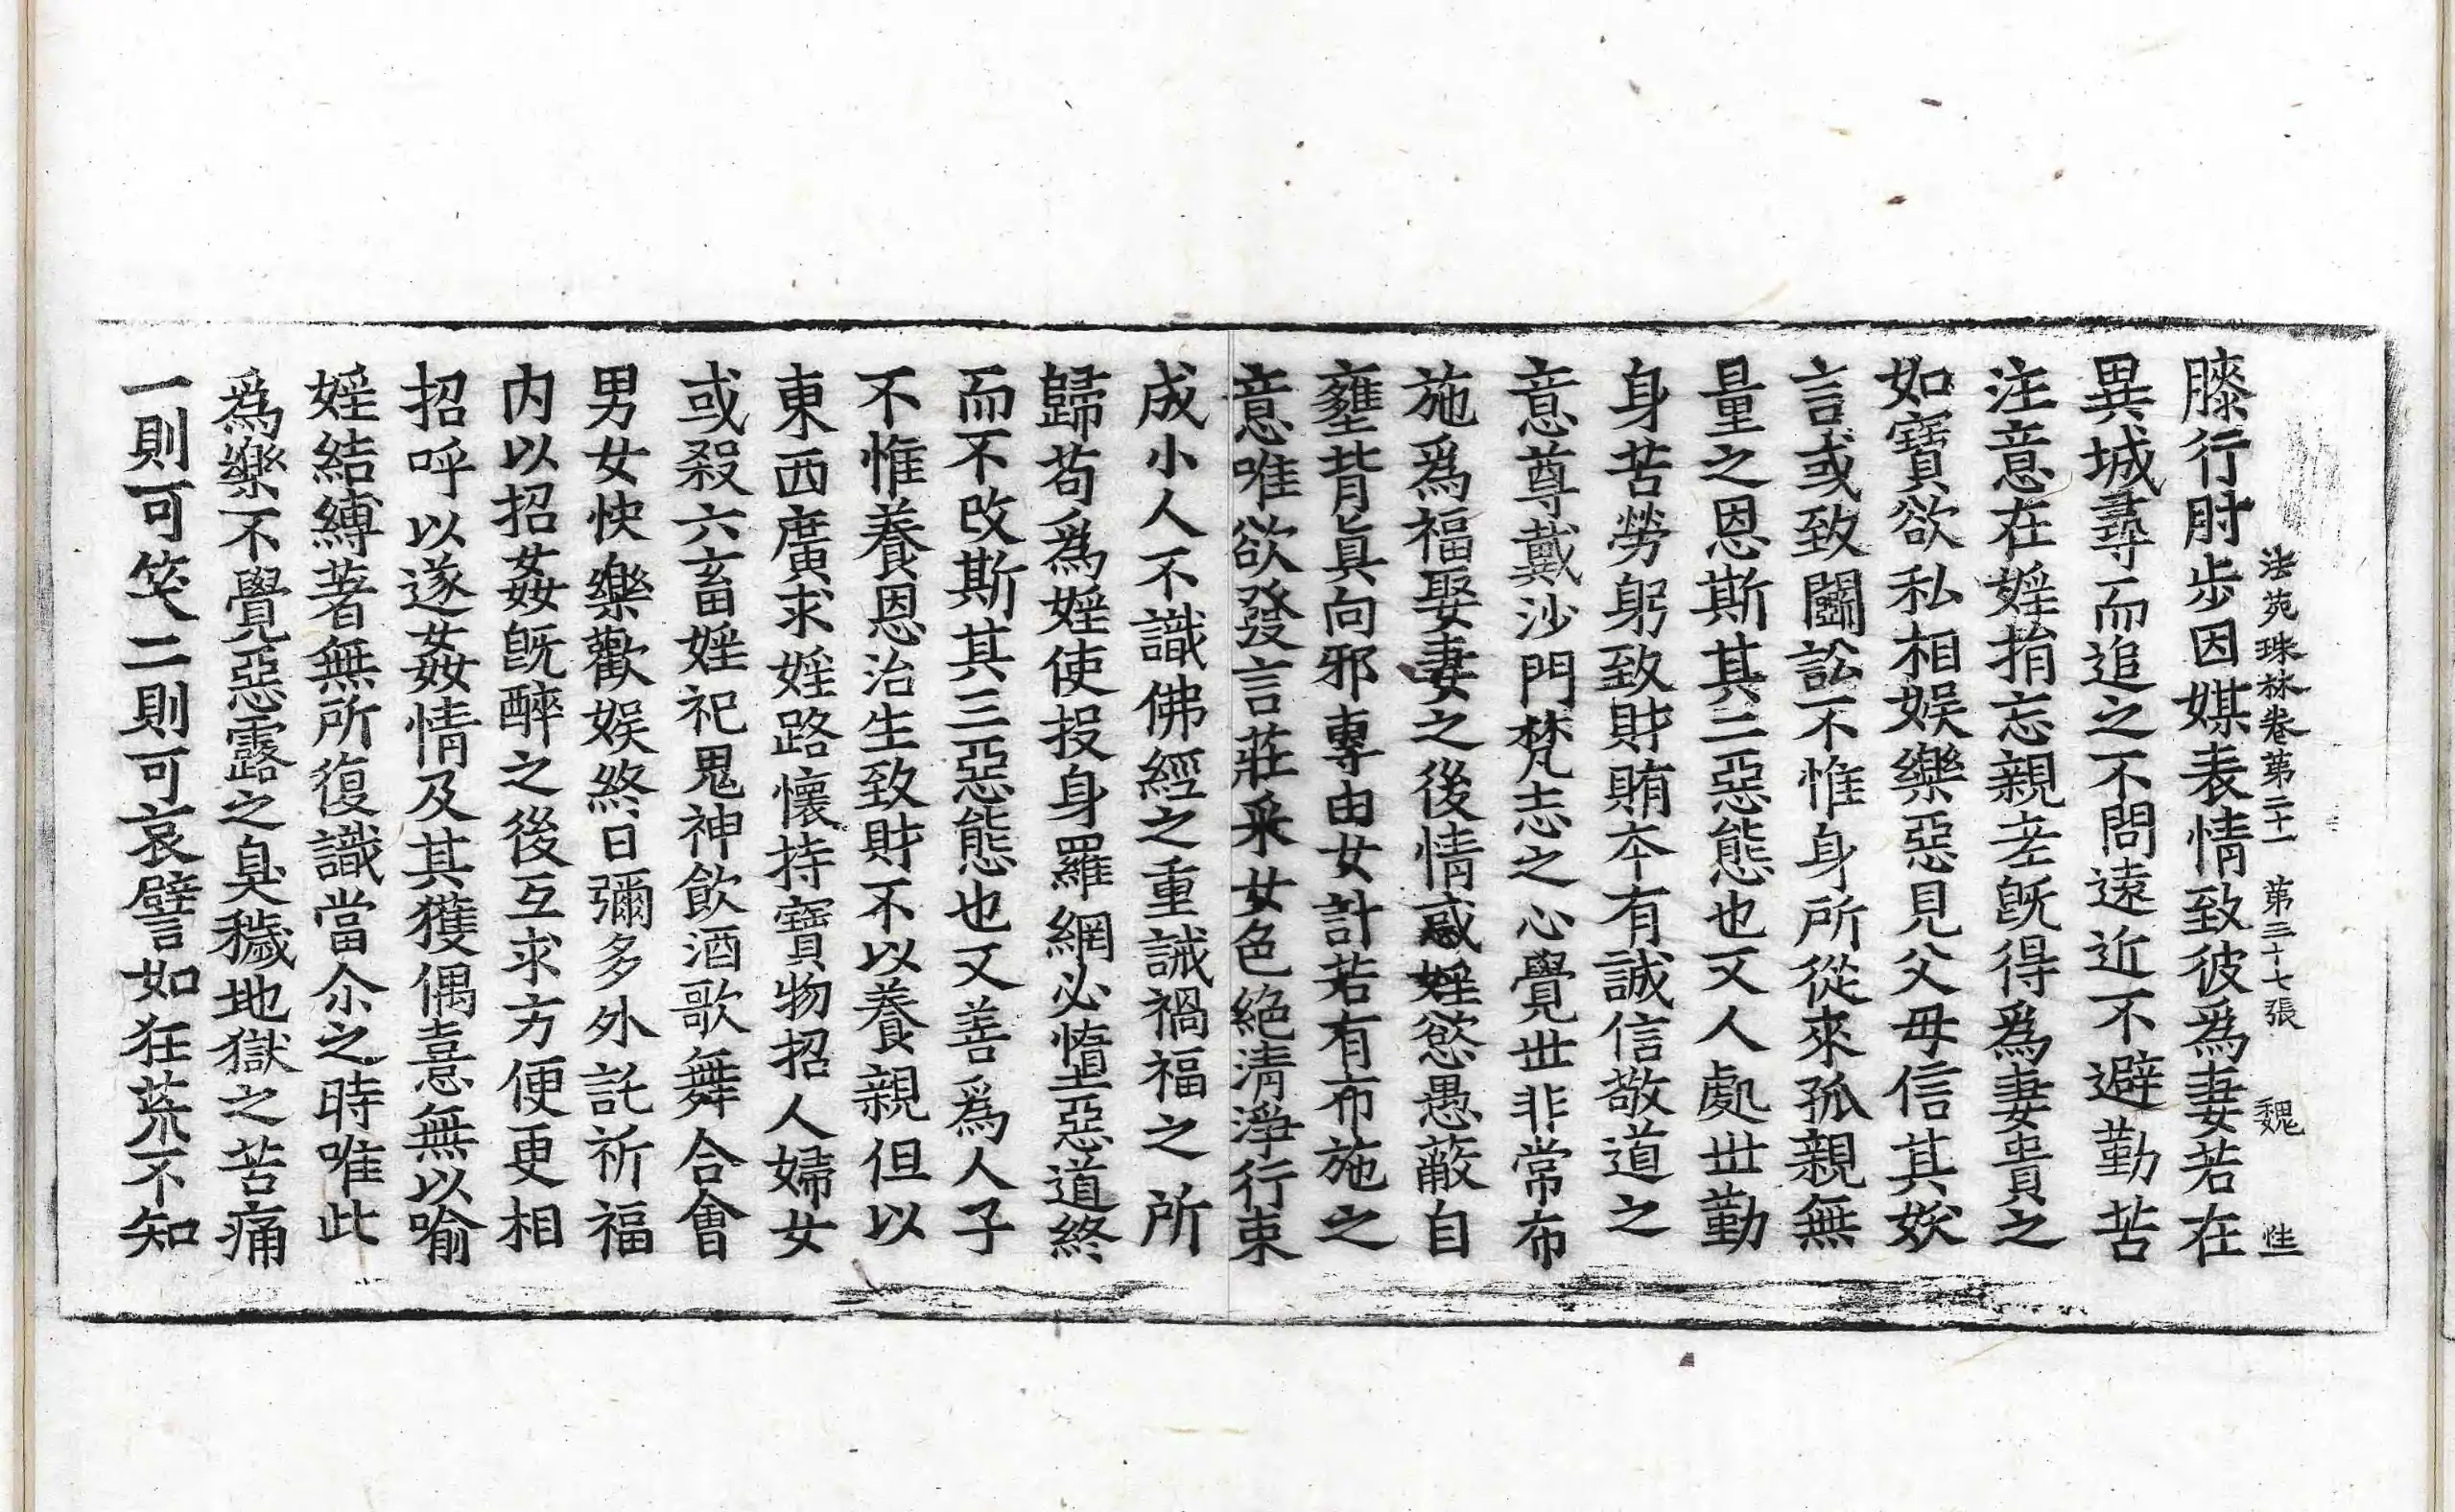 法苑珠林卷第二十一 第三十七張 魏 性
膝行肘步因媒表情致彼爲妻若在
異城尋而追之不問遠近不避勤苦
注意在婬捐忘親老旣得爲妻貴之
如寶欲私相娛樂惡見父母信其妖
言或致鬪訟不惟身所從來孤親無
量之恩斯其二惡態也又人處世勤
身苦勞躬致財賄夲有誠信敬道之
意尊戴沙門梵志之心覺世非常布
施爲福娶妻之後情惑婬慾愚蔽自
壅背眞向邪專由女計若有布施之
意唯欲發言莊采女色絶淸淨行束
成小人不識佛經之重誡禍福之所
歸苟爲婬使投身羅網必墮惡道終
而不改斯其三惡態也又善爲人子
不惟養恩治生致財不以養親但以
東西廣求婬路懷持寶物招人婦女
或殺六畜婬祀鬼神飮酒歌舞合會
男女快樂歡娛終日彌多外託祈福
内以招姦旣醉之後互求方便更相
招呼以遂姦情及其獲偶憙無以喻
婬結縛著無所復識當尒之時唯此
爲樂不覺惡露之臭穢地獄之苦痛
一則可笑二則可哀譬如狂荒不知